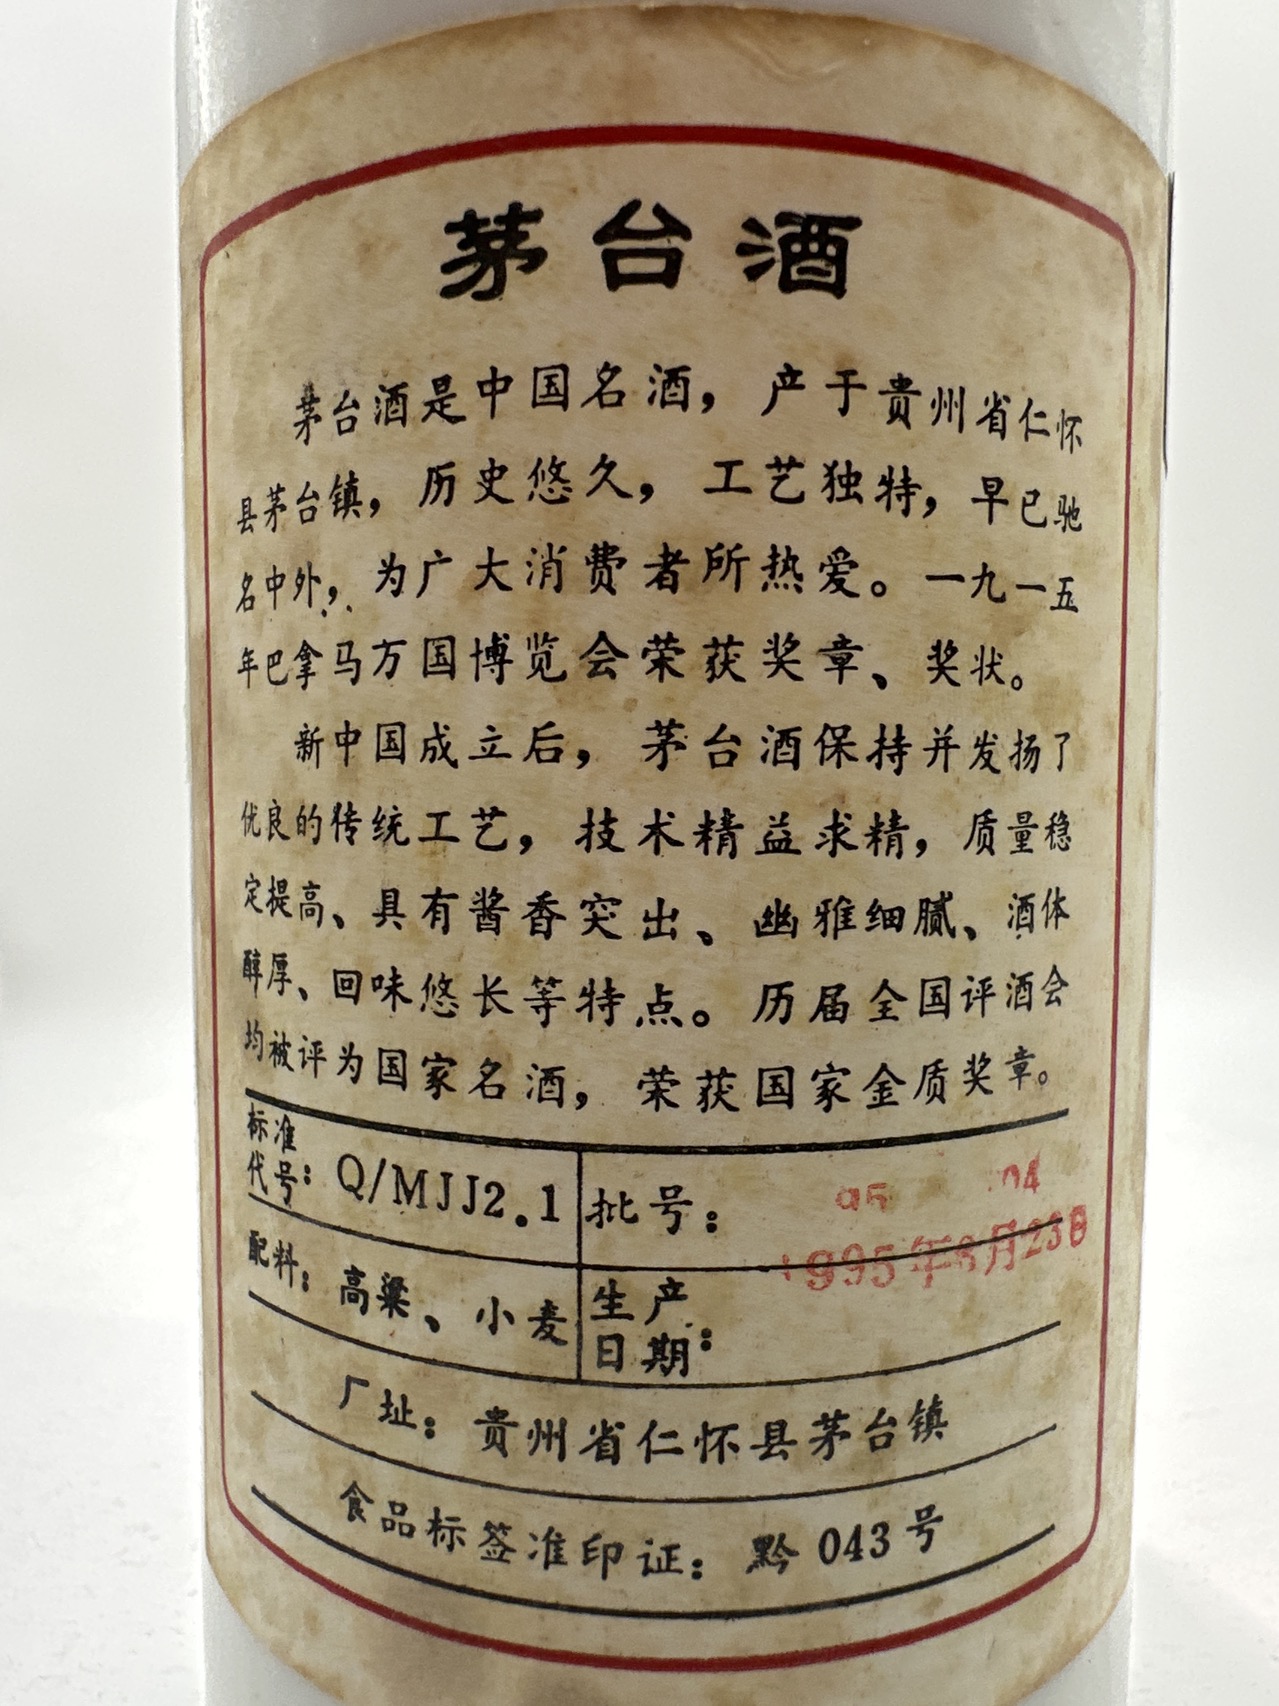 茅台酒
茅台酒是中国名酒，产于贵州省仁怀
县茅台镇，历史悠久，工艺独特，早已驰
名中外，为广大消费者所热爱。一九一五
年巴拿马万国博览会荣获奖章、奖状。
新中国成立后，茅台酒保持并发扬了
优良的传统工艺，技术精益求精，质量稳
定提高、具有酱香突出、幽雅细腻、酒体
醇厚、回味悠长等特点。历届全国评酒会
均被评为国家名酒，荣获国家金质奖章。
标准代号：Q/MJJ2.1
批号：95 04
配料：高粱、小麦
生产日期：1995年8月23日
厂址：贵州省仁怀县茅台镇
食品标签准印证：黔043号